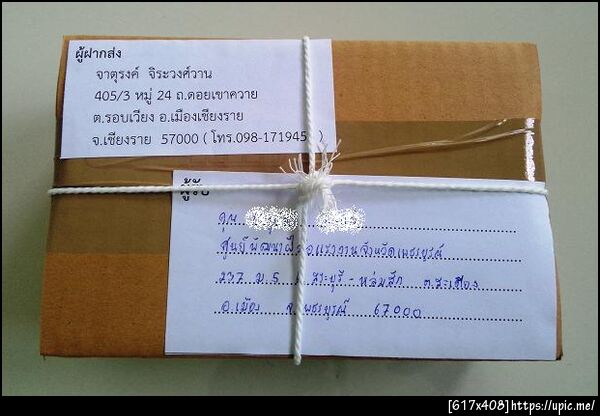 ผู้ฝากส่ง
จาตุรงค์ จิระวงศ์วาน
405/3 หมู่ 24 ถ.ดอยเขาควาย
ต.รอบเวียง อ.เมืองเชียงราย
จ.เชียงราย 57000 ( โทร.098-171945 )
ผู้รับ
คุณ
ศูนย์พัฒนาฝีมือแรงงานจังหวัดเพชรบูรณ์
237 ม.5 สระบุรี - หล่มสัก ต.สะเดียง
อ.เมือง จ.เพชรบูรณ์ 67000
[617x408]https://upic.me/